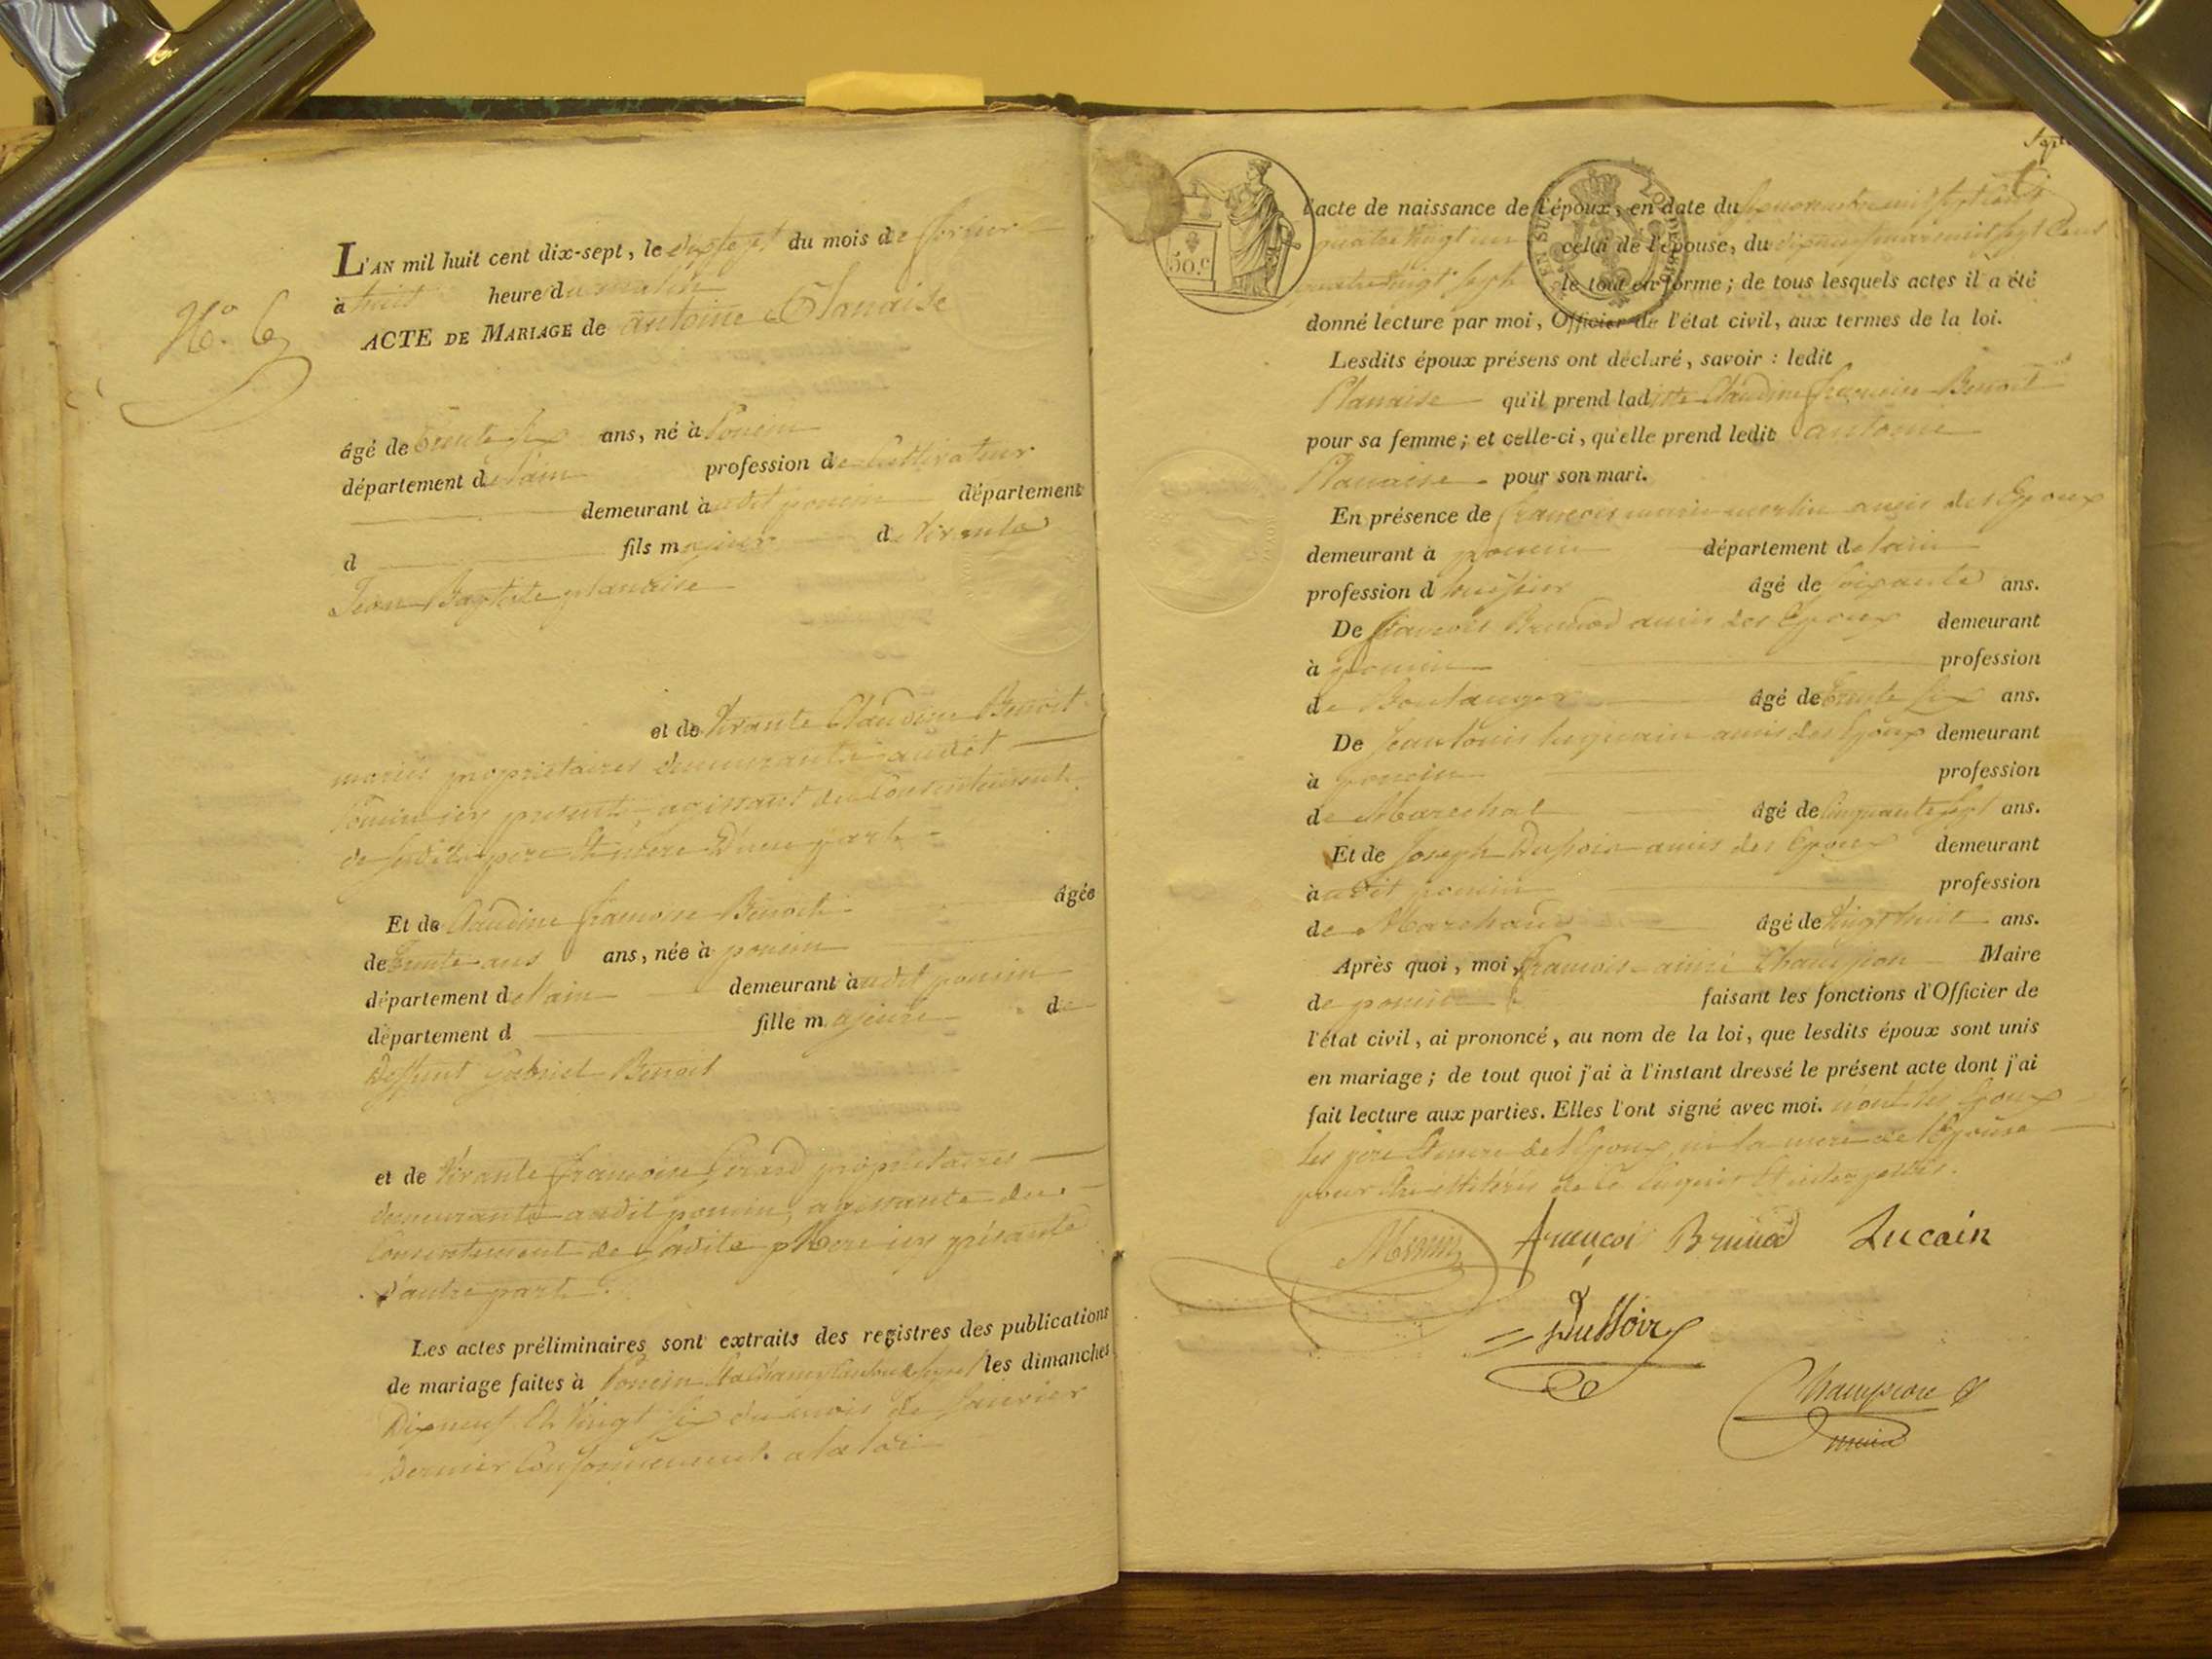 No. 6
L'AN mil huit cent dix-sept, le dix sept du mois de fevrier
à huit heure du matin
ACTE DE MARIAGE de antoine Planaise
âgé de trente six ans, né à Poncin
département de lain profession de Cultivateur
demeurant à udit poncin département
d fils majeur de vivante
Jean Baptiste planaise
et de vivante Claudine Benoit
mariés proprietaires demeurants audit
Poncin icy presents, agissant du Consentement
de sesdits pere et mere D'une part
Et de Claudine francoise Benoit âgée
de trente ans ans, née à poncin
département de lain demeurant audit poncin
département d fille majeure de
Deffunt Gabriel Benoit
et de vivante francoise Gerard proprietaires
demeurante audit poncin, agissante du
Consentement de Ladite Mere icy présante
d'autre part
Les actes préliminaires sont extraits des registres des publications
de mariage faites à Poncin les dimanches
Dix neuf Et Vingt six du mois de Janvier
Dernier Conformement a la loi
50.c
l'acte de naissance de l'époux, en date du mil sept Cent
quatre vingt un celui de l'épouse, du dix neuf mars mil sept Cent
quatre vingt sept le tout en forme; de tous lesquels actes il a été
donné lecture par moi, Officier de l'état civil, aux termes de la loi.
Lesdits époux présens ont déclaré, savoir: ledit
Planaise qu'il prend ladite Claudine francoise Benoit
pour sa femme; et celle-ci, qu'elle prend ledit antoine
Planaise pour son mari.
En présence de francois marie amis des Epoux
demeurant à poncin département de lain
profession d huissier âgé de soixante ans.
De francois Brunod amis des Epoux demeurant
à poncin profession
de Boulanger âgé de trente six ans.
De Jean Louis amis des Epoux demeurant
à poncin profession
de Marechal âgé de Cinquante sept ans.
Et de Joseph Dussoir amis des Epoux demeurant
à udit poncin profession
de Marchand âgé de vingt huit ans.
Après quoi, moi, francois aimé Champion Maire
de poncin faisant les fonctions d'Officier de
l'état civil, ai prononcé, au nom de la loi, que lesdits époux sont unis
en mariage; de tout quoi j'ai à l'instant dressé le présent acte dont j'ai
fait lecture aux parties. Elles l'ont signé avec moi. non les Epoux
Les pere et mere de l'Epoux ni la mere de l'Epouse
pour être illitérés de ce Enquis et interpellés.
françoi Brunod Lucain
Dussoir
Champion
maire